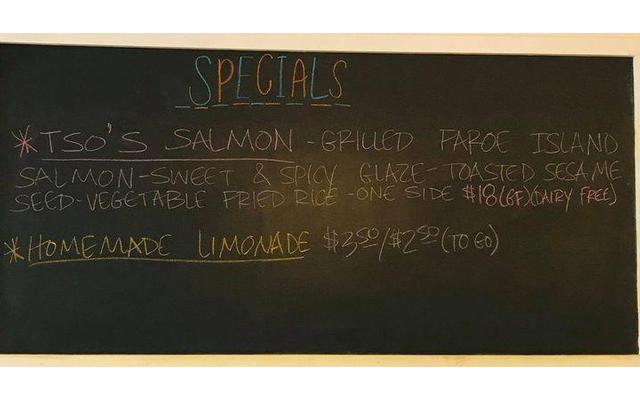 SPECIALS
*TSO'S SALMON - GRILLED FAROE ISLAND
SALMON - SWEET & SPICY GLAZE - TOASTED SESAME
SEED - VEGETABLE FRIED RICE - ONE SIDE $18 (GF) (DAIRY FREE)
*HOMEMADE LIMONADE $3.50/$2.50 (TO GO)